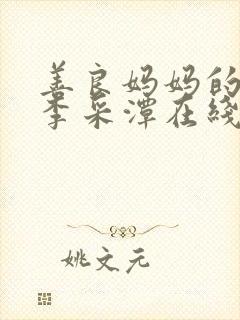 善良妈妈的
李采潭在线
姚文元